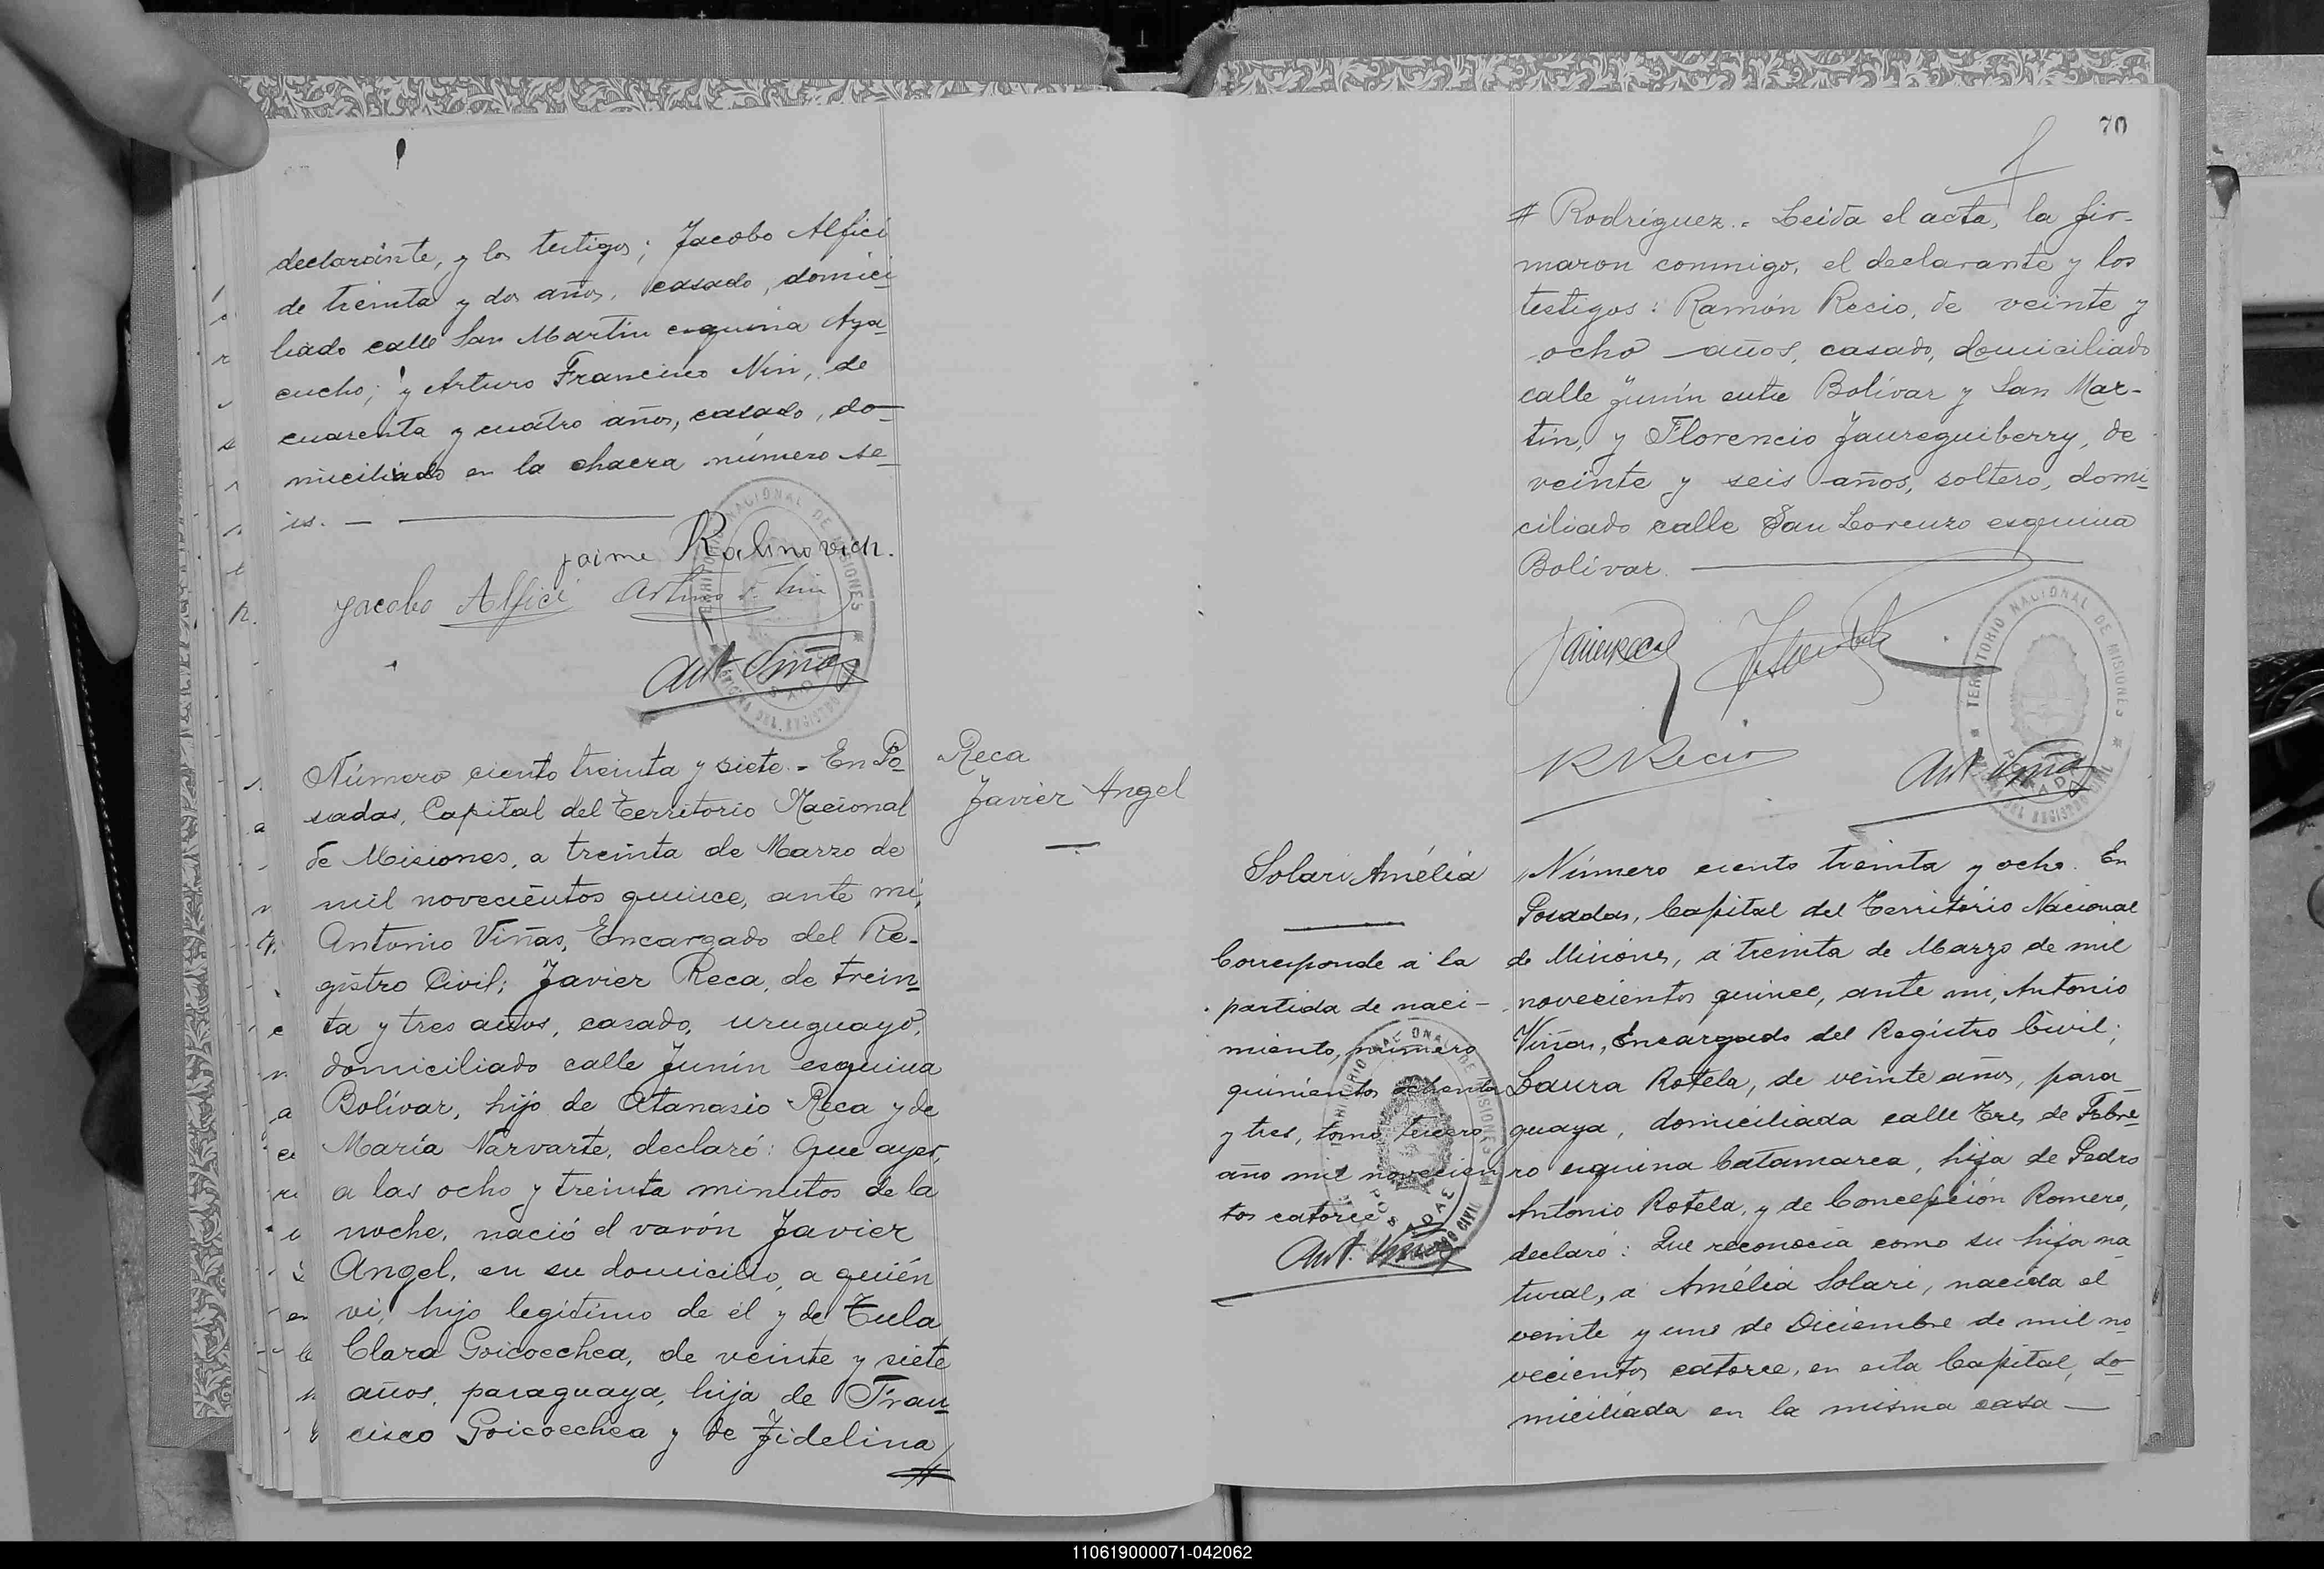 declarante, y los testigos; Jacobo Alfici
de treinta y dos años, casado, domici-
liado calle San Martin esquina Aya-
cucho; y Arturo Francisco Nin, de
cuarenta y cuatro años, casado, do-
miciliado en la chacra número se-
is. —
Jaime Rabinovich.
Jacobo Alfici Arturo F. Nin
Ant. Viñas
Reca
Javier Angel
Número ciento treinta y siete. - En Po-
sadas, Capital del Territorio Nacional
de Misiones, a treinta de Marzo de
mil novecientos quince, ante mi,
Antonio Viñas, Encargado del Re-
gistro Civil; Javier Reca, de trein-
ta y tres años, casado, uruguayo,
domiciliado calle Junín esquina
Bolívar, hijo de Atanasio Reca y de
María Narvarte, declaró: Que ayer,
a las ocho y treinta minutos de la
noche, nació el varón Javier
Angel, en su domicilio, a quién
vi, hijo legítimo de él y de Tula
Clara Goicoechea, de veinte y siete
años, paraguaya, hija de Fran-
cisco Goicoechea y de Fidelina
#
70
# Rodríguez. - Leida el acta, la fir-
maron conmigo, el declarante y los
testigos: Ramón Recio, de veinte y
ocho años, casado, domiciliado
calle Junín entre Bolívar y San Mar-
tín, y Florencio Jaureguiberry, de
veinte y seis años, soltero, domi-
ciliado calle San Lorenzo esquina
Bolívar.
R Recio
Ant. Viñas
TERRITORIO NACIONAL DE MISIONES
POSADAS
OFICINA DEL REGISTRO CIVIL
Solari Amélia
Corresponde a la
partida de naci-
miento, número
quinientos ochenta
y tres, tomo tercero,
año mil novecien-
tos catorce
Ant. Viñas
Número ciento treinta y ocho. En
Posadas, Capital del Territorio Nacional
de Misiones, a treinta de Marzo de mil
novecientos quince, ante mi, Antonio
Viñas, Encargado del Registro Civil;
Laura Rotela, de veinte años, para-
guaya, domiciliada calle Tres de Febre-
ro esquina Catamarca, hija de Pedro
Antonio Rotela, y de Concepción Romero,
declaró: Que reconocia como su hija na-
tural, a Amélia Solari, nacida el
veinte y uno de Diciembre de mil no-
vecientos catorce, en esta Capital, do-
miciliada en la misma casa —
110619000071-042062